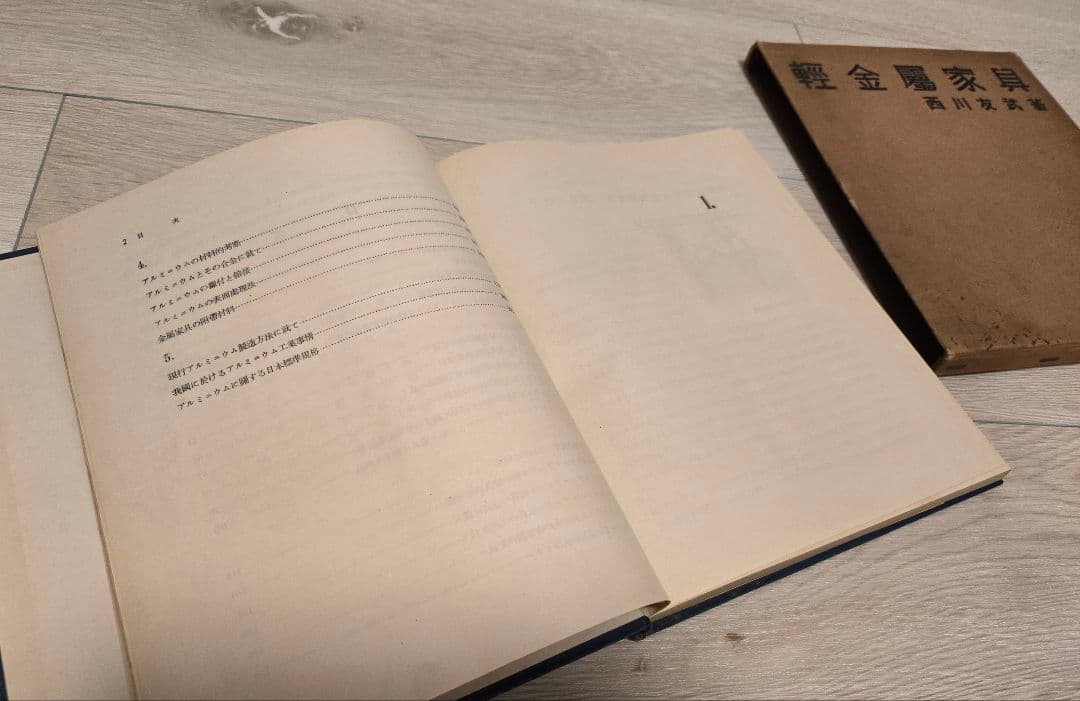 2 目 次
4.
アルミニウムの材料的考察
アルミニウムとその合金に就て
アルミニウムの鑞付と鎔接
アルミニウムの表面處理法
金屬家具の附帶材料
5.
現行アルミニウム製造方法に就て
我國に於けるアルミニウム工業事情
アルミニウムに關する日本標準規格
1.
輕金屬家具
西川友武著